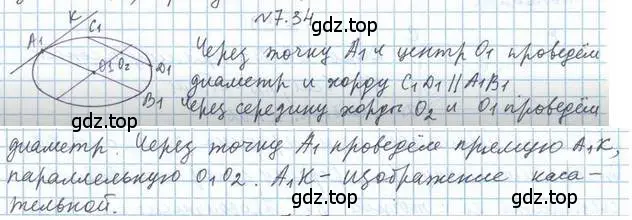 №7.34
K
A1
C1
O1
O2
D1
B1
Через точку A1 и центр O1 проведём
диаметр и хорду C1D1 || A1B1
Через середину хорды O2 и O1 проведём
диаметр. Через точку A1 проведём прямую A1K,
параллельную O1O2. A1K - изображение каса-
тельной.
gdz.top
gdz.top
gdz.top
gdz.top
gdz.top